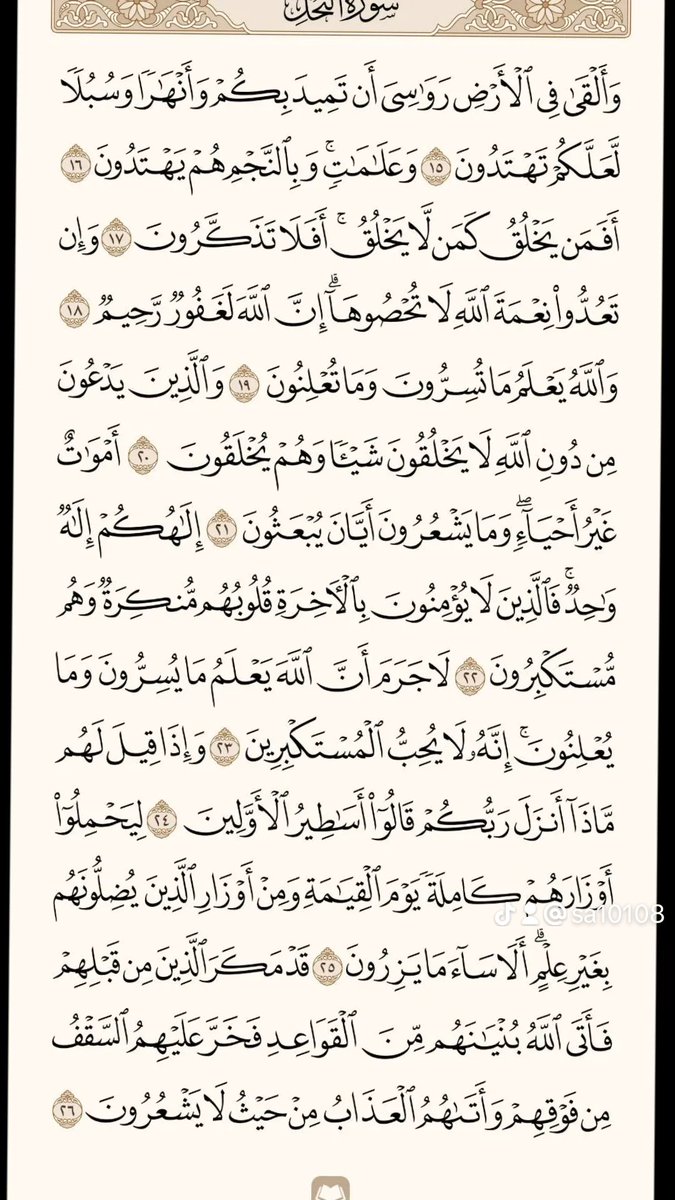 سورة النحل
وَأَلْقَىٰ فِى ٱلْأَرْضِ رَوَٰسِىَ أَن تَمِيدَ بِكُمْ وَأَنْهَٰرًا وَسُبُلًا
لَّعَلَّكُمْ تَهْتَدُونَ ١٥ وَعَلَٰمَٰتٍۢ ۚ وَبِٱلنَّجْمِ هُمْ يَهْتَدُونَ ١٦
أَفَمَن يَخْلُقُ كَمَن لَّا يَخْلُقُ ۚ أَفَلَا تَذَكَّرُونَ ١٧ وَإِن
تَعُدُّوا۟ نِعْمَةَ ٱللَّهِ لَا تُحْصُوهَآ ۗ إِنَّ ٱللَّهَ لَغَفُورٌۭ رَّحِيمٌۭ ١٨
وَٱللَّهُ يَعْلَمُ مَا تُسِرُّونَ وَمَا تُعْلِنُونَ ١٩ وَٱلَّذِينَ يَدْعُونَ
مِن دُونِ ٱللَّهِ لَا يَخْلُقُونَ شَيْـًۭٔا وَهُمْ يُخْلَقُونَ ٢٠ أَمْوَٰتٌ
غَيْرُ أَحْيَآءٍۢ ۖ وَمَا يَشْعُرُونَ أَيَّانَ يُبْعَثُونَ ٢١ إِلَٰهُكُمْ إِلَٰهٌۭ
وَٰحِدٌۭ ۚ فَٱلَّذِينَ لَا يُؤْمِنُونَ بِٱلْـَٔاخِرَةِ قُلُوبُهُم مُّنكِرَةٌۭ وَهُم
مُّسْتَكْبِرُونَ ٢٢ لَا جَرَمَ أَنَّ ٱللَّهَ يَعْلَمُ مَا يُسِرُّونَ وَمَا
يُعْلِنُونَ ۚ إِنَّهُۥ لَا يُحِبُّ ٱلْمُسْتَكْبِرِينَ ٢٣ وَإِذَا قِيلَ لَهُم
مَّاذَآ أَنزَلَ رَبُّكُمْ قَالُوٓا۟ أَسَٰطِيرُ ٱلْأَوَّلِينَ ٢٤ لِيَحْمِلُوٓا۟
أَوْزَارَهُمْ كَامِلَةًۭ يَوْمَ ٱلْقِيَٰمَةِ وَمِنْ أَوْزَارِ ٱلَّذِينَ يُضِلُّونَهُم
@sa10108
بِغَيْرِ عِلْمٍ ۗ أَلَا سَآءَ مَا يَزِرُونَ ٢٥ قَدْ مَكَرَ ٱلَّذِينَ مِن قَبْلِهِمْ
فَأَتَى ٱللَّهُ بُنْيَٰنَهُم مِّنَ ٱلْقَوَاعِدِ فَخَرَّ عَلَيْهِمُ ٱلسَّقْفُ
مِن فَوْقِهِمْ وَأَتَىٰهُمُ ٱلْعَذَابُ مِنْ حَيْثُ لَا يَشْعُرُونَ ٢٦